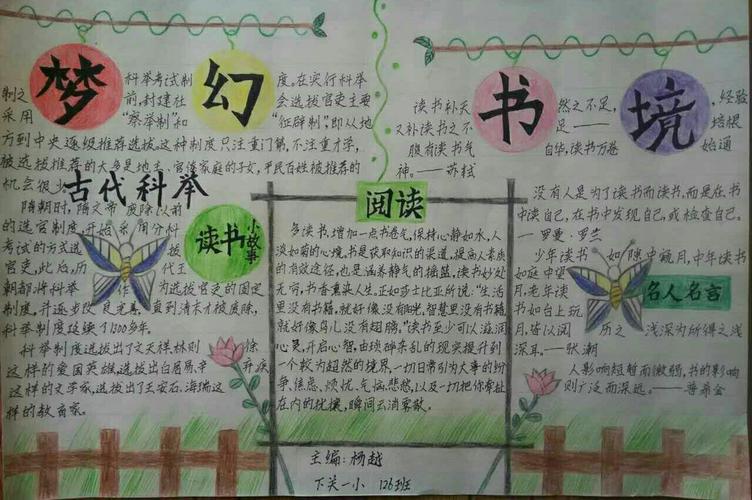 梦幻书境
科举考试制度。在实行科举
制之前,封建社会选拔官吏主要
采用"察举制"和"征辟制"即从地
方到中央逐级推荐选拔,这种制度只注重门第,不注重才学,
被选拔推荐的大多是地主、官僚家庭的子女,平民百姓被推荐的
机会很少
古代科举
读书小故事
隋朝时,隋文帝废除以前
的选官制度,开始采用分科
考试的方式选拔
官吏,此后,历代王
朝都将科举作为选拔官吏的固定
制度,并逐步改良完善,直到清末才被废除,
科举制度延续了1300多年。
科举制度选拔出了文天祥、林则徐
这样的爱国英雄,选拔出白居易、辛弃疾
这样的文学家,选拔出了王安石、海瑞这
样的教育家。
阅读
多读书,增加一点书卷气,保持心静如水,人
淡如菊的心境,书是获取知识的渠道,提高人素质
的有效途径,也是涵养静气的摇篮,读书妙处
无穷,书香熏染人生。正如莎士比亚所说:"生活
里没有书籍,就好像没有阳光,智慧里没有书籍
就好像鸟儿没有翅膀。"读书至少可以滋润
心灵,开启心智,由琐碎杂乱的现实提升到
一个较为超然的境界,一切日常引为大事的纷
争、焦急、烦忧、气恼、悲愁,以及一切把你牵扯
在内的扰攘,瞬间云消雾散。
主编:杨越
下关一小 126班
读书补天然之不足,经验
又补读书之不足——培根
腹有读书气自华,读书万卷始通
神。——苏轼
没有人是为了读书而读书,而是在书
中读自己,在书中发现自己,或检查自己。
——罗曼·罗兰
少年读书如隙中窥月,中年读书
如庭中望月,老年读
书如台上玩
月,皆以阅历之浅深为所得之浅
深耳。——张潮
名人名言
人影响短暂而微弱,书的影响
则广泛而深远。——普希金